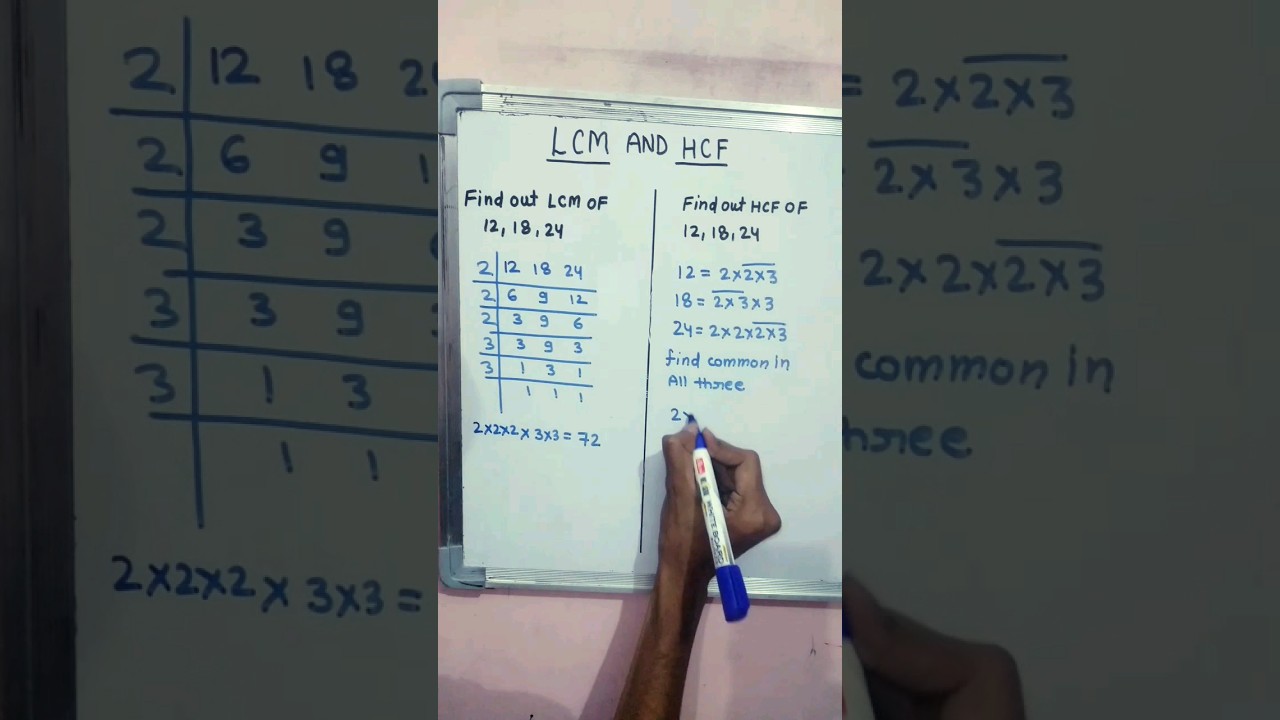 LCM AND HCF
Find out LCM OF
12, 18, 24
2 12 18 24
2 6 9 12
2 3 9 6
3 3 9 3
3 1 3 1
1 1 1
2×2×2×3×3=72
Find out HCF OF
12, 18, 24
12 = 2×2×3
18 = 2×3×3
24 = 2×2×2×3
find common in
All three
2×
WHITE BOARD